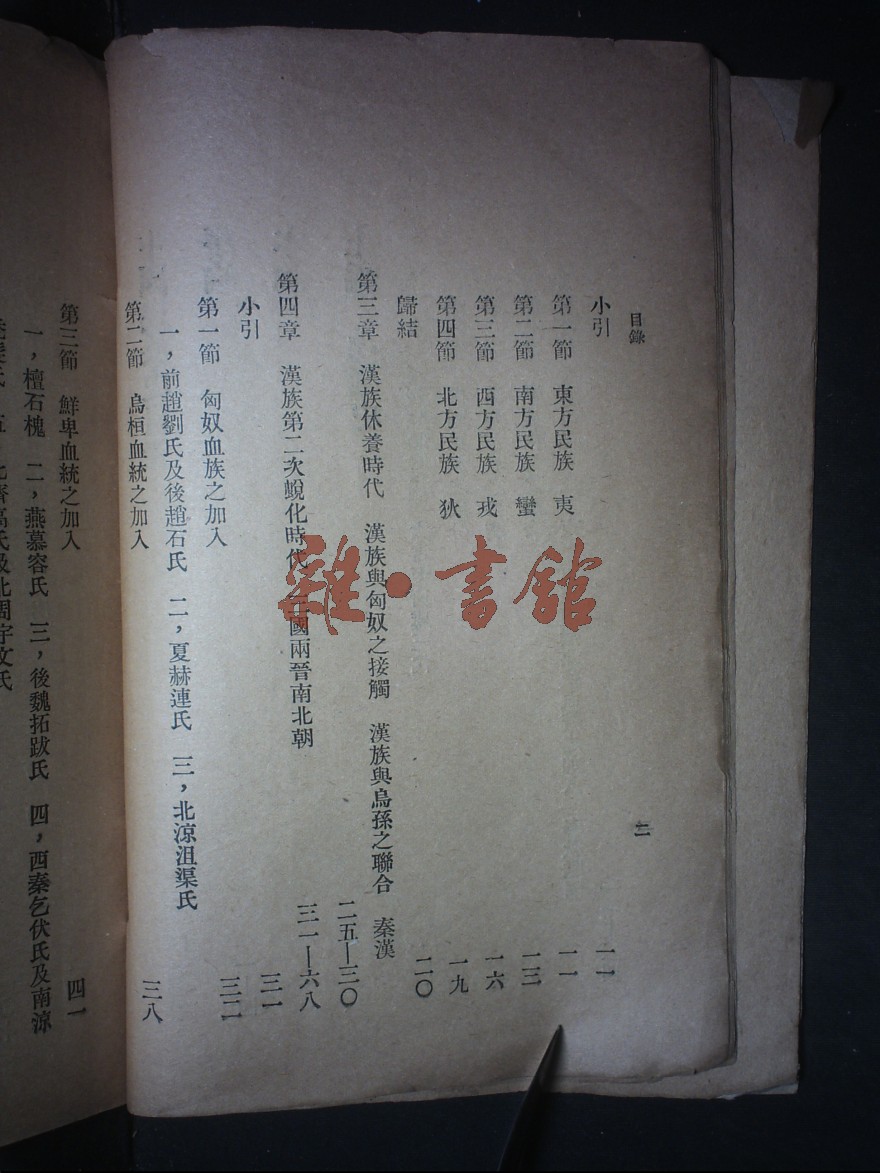 目錄
二
小引 一一
第一節 東方民族 夷 一一
第二節 南方民族 蠻 一三
第三節 西方民族 戎 一六
第四節 北方民族 狄 一九
歸結 二〇
第三章 漢族休養時代 漢族與匈奴之接觸 漢族與烏孫之聯合 秦漢
二五—三〇
第四章 漢族第二次蛻化時代 三國兩晉南北朝 三一—六八
小引 三一
第一節 匈奴血族之加入 三二
一，前趙劉氏及後趙石氏 二，夏赫連氏 三，北涼沮渠氏
第二節 烏桓血統之加入 三八
第三節 鮮卑血統之加入 四一
一，檀石槐 二，燕慕容氏 三，後魏拓跋氏 四，西秦乞伏氏及南涼
雜·書館